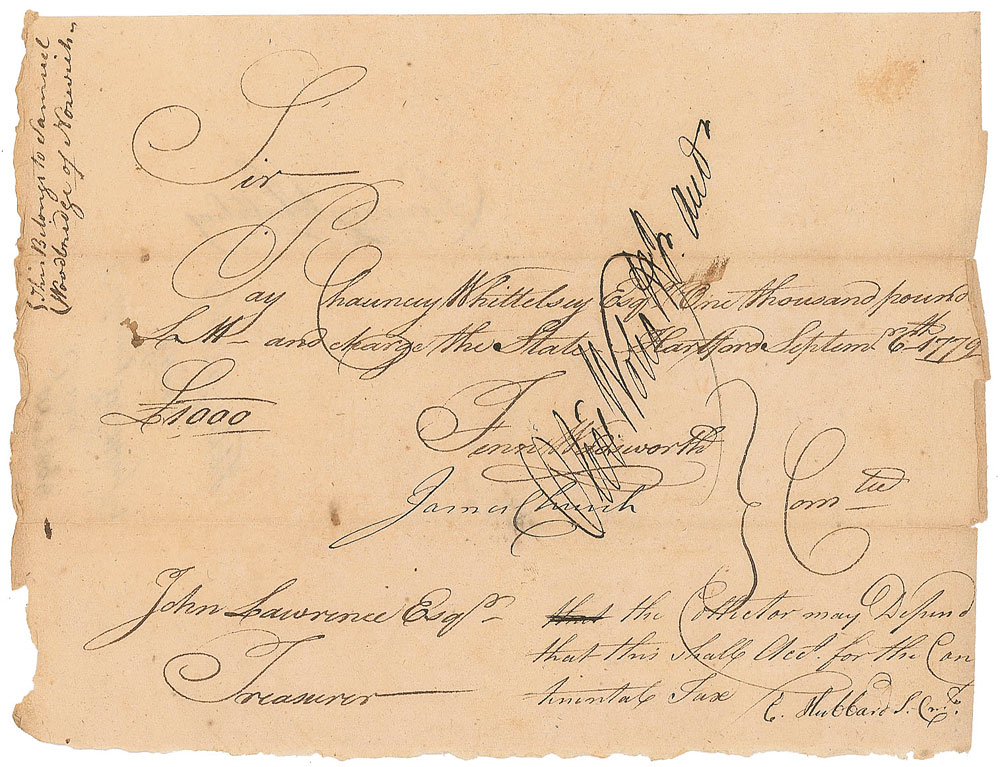 This Belongs to Samuel
Woodbridge of Norwich
Sir
Pay Chauncey Whittelsey Esqr One thousand pound
L M and charge the State Hartford Septemr 6th 1779
£1000
Fenn Wadsworth
James Church
Comtee
John Lawrence Esqr
Treasurer
that the Collector may Depend
that this shall Acct for the Con
tinental Tax
E. Hubbard